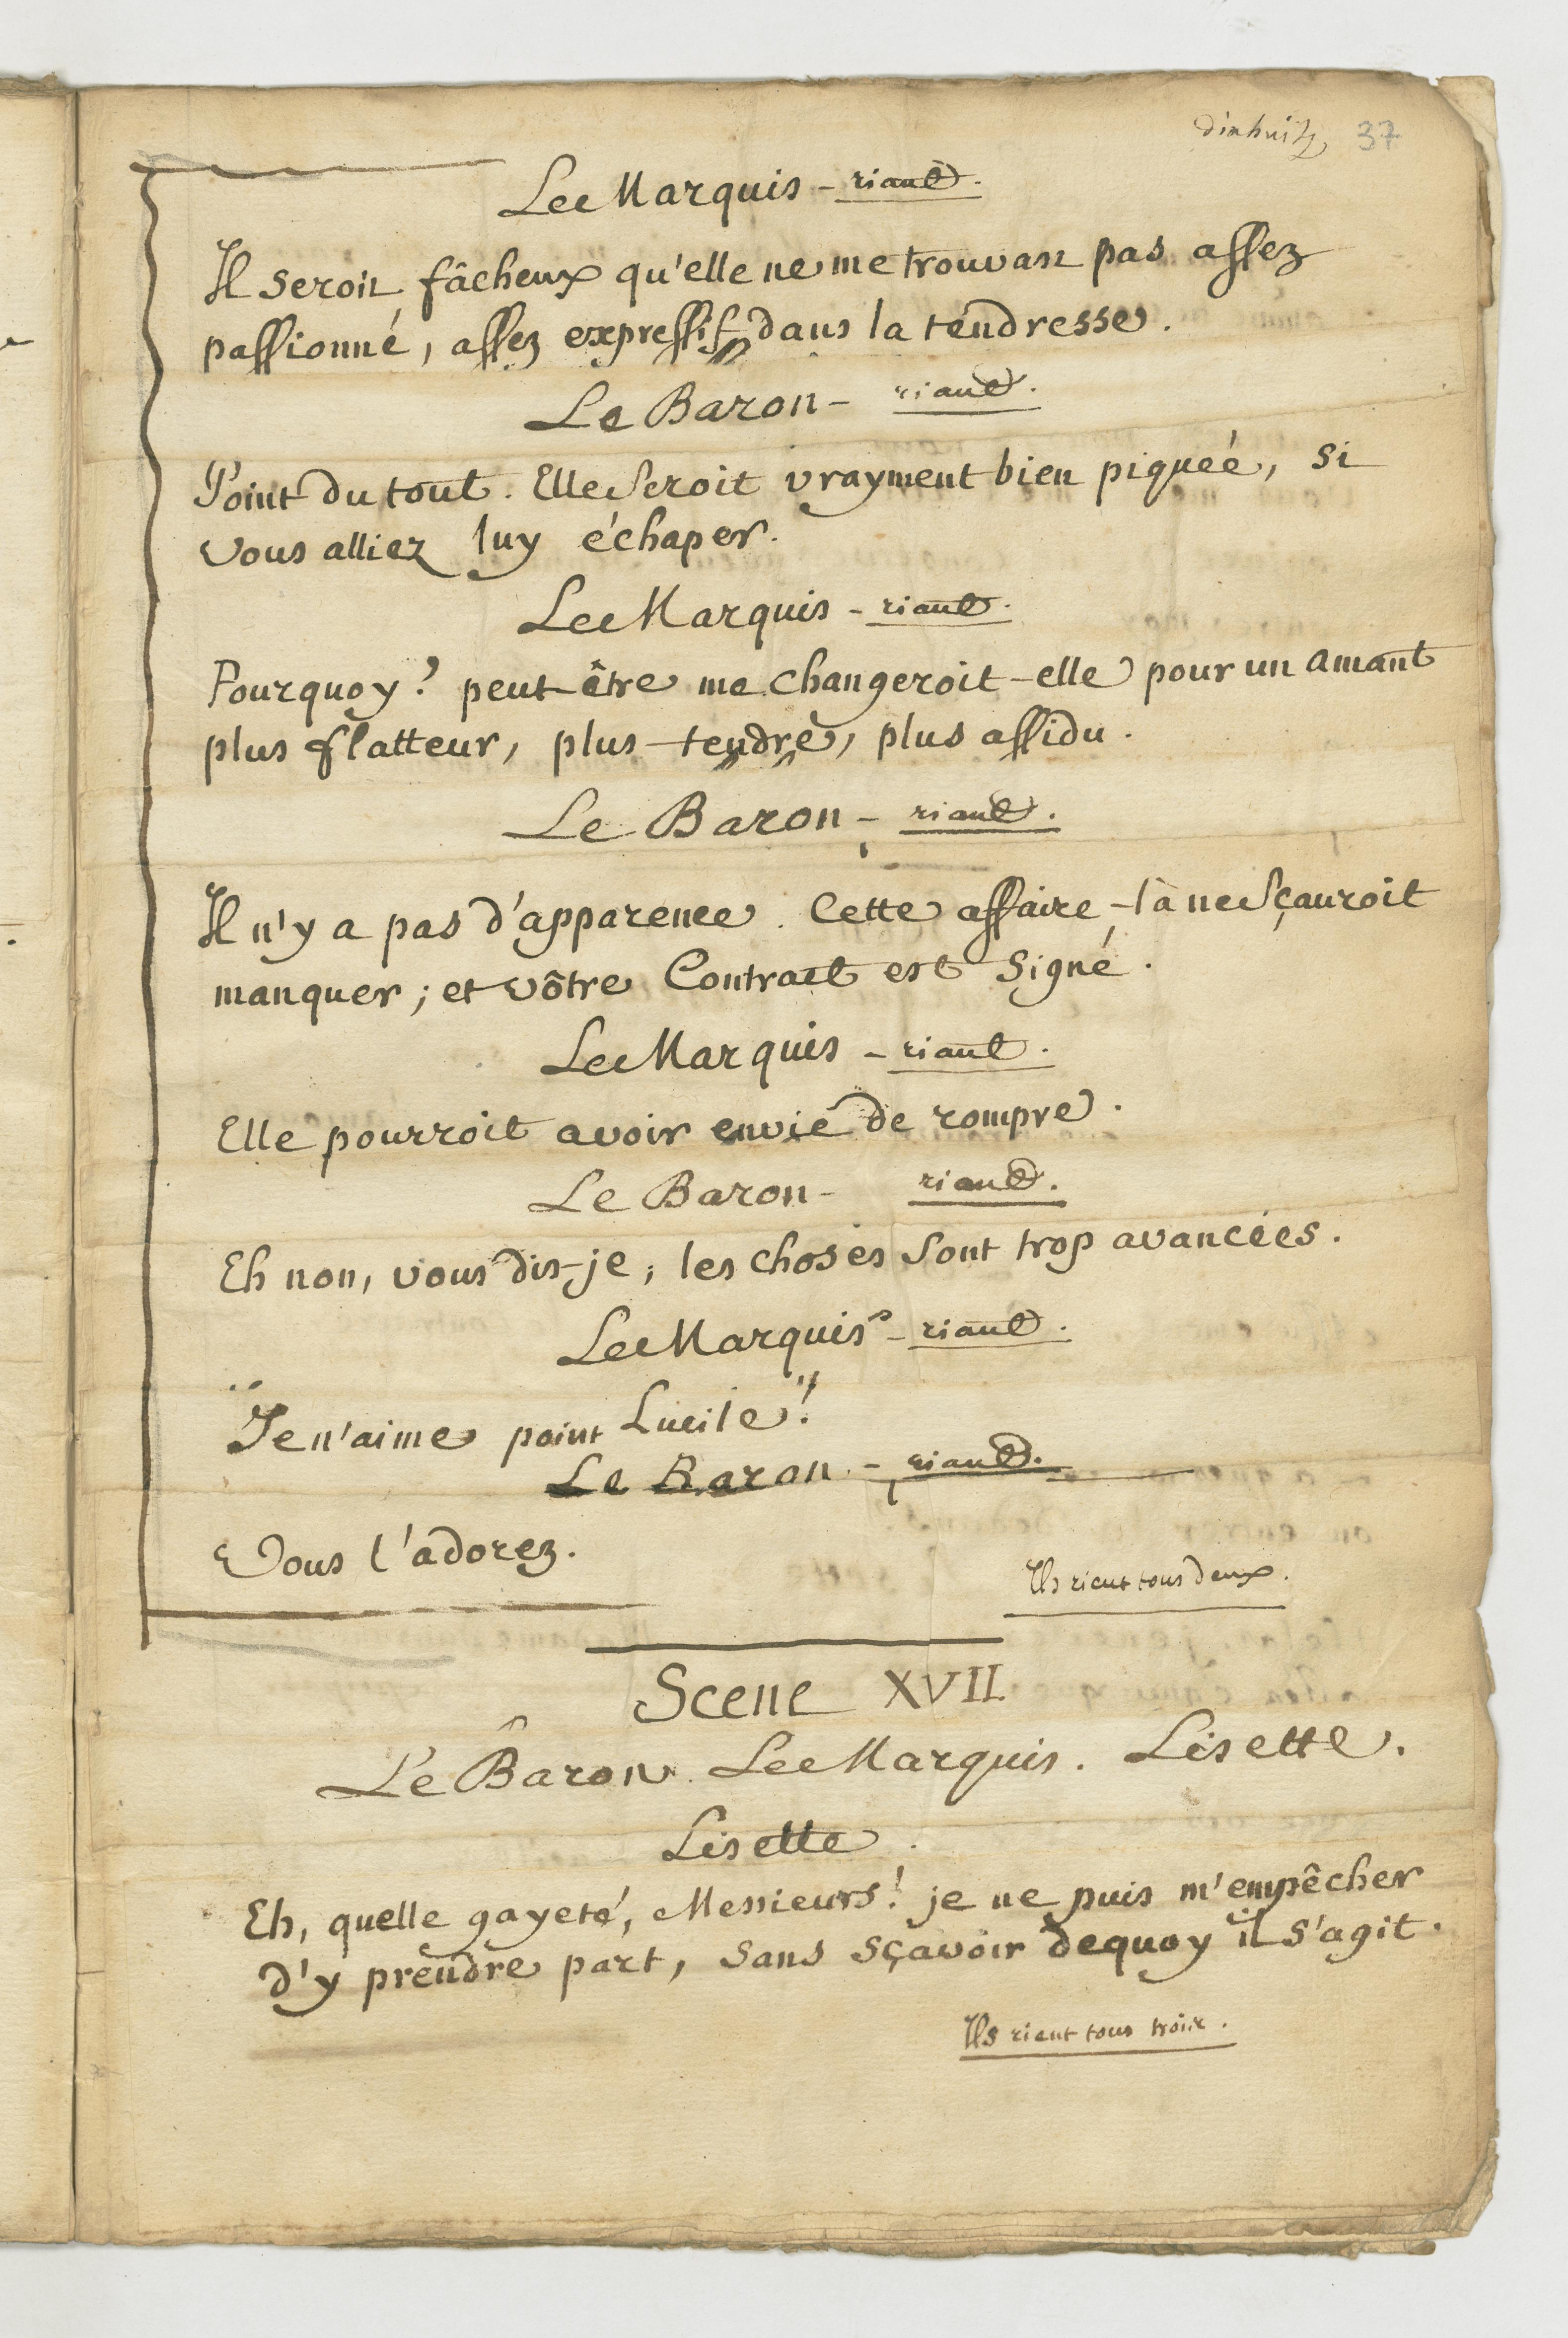 dixhuit 37
Le Marquis - riant.
Il seroit fâcheux qu'elle ne me trouvast pas assez
passionné, assez expressif dans la tendresse.
Le Baron - riant.
Point du tout. Elle seroit vrayment bien piquée, si
vous alliez luy échaper.
Le Marquis - riant.
Pourquoy? peut-être me changeroit-elle pour un amant
plus flatteur, plus tendre, plus assidu.
Le Baron - riant.
Il n'y a pas d'apparence. Cette affaire-là ne sçauroit
manquer; et vôtre Contract est signé.
Le Marquis - riant.
Elle pourroit avoir envie de rompre.
Le Baron - riant.
Eh non, vous dis-je; les choses sont trop avancées.
Le Marquis - riant.
"Je n'aime point Lucile"!
Le Baron - riant.
Vous l'adorez.
Ils rient tous deux.
Scene XVII.
Le Baron. Le Marquis. Lisette.
Lisette.
Eh, quelle gayeté, Messieurs! je ne puis m'empêcher
d'y prendre part, sans sçavoir dequoy il s'agit.
Ils rient tous trois.